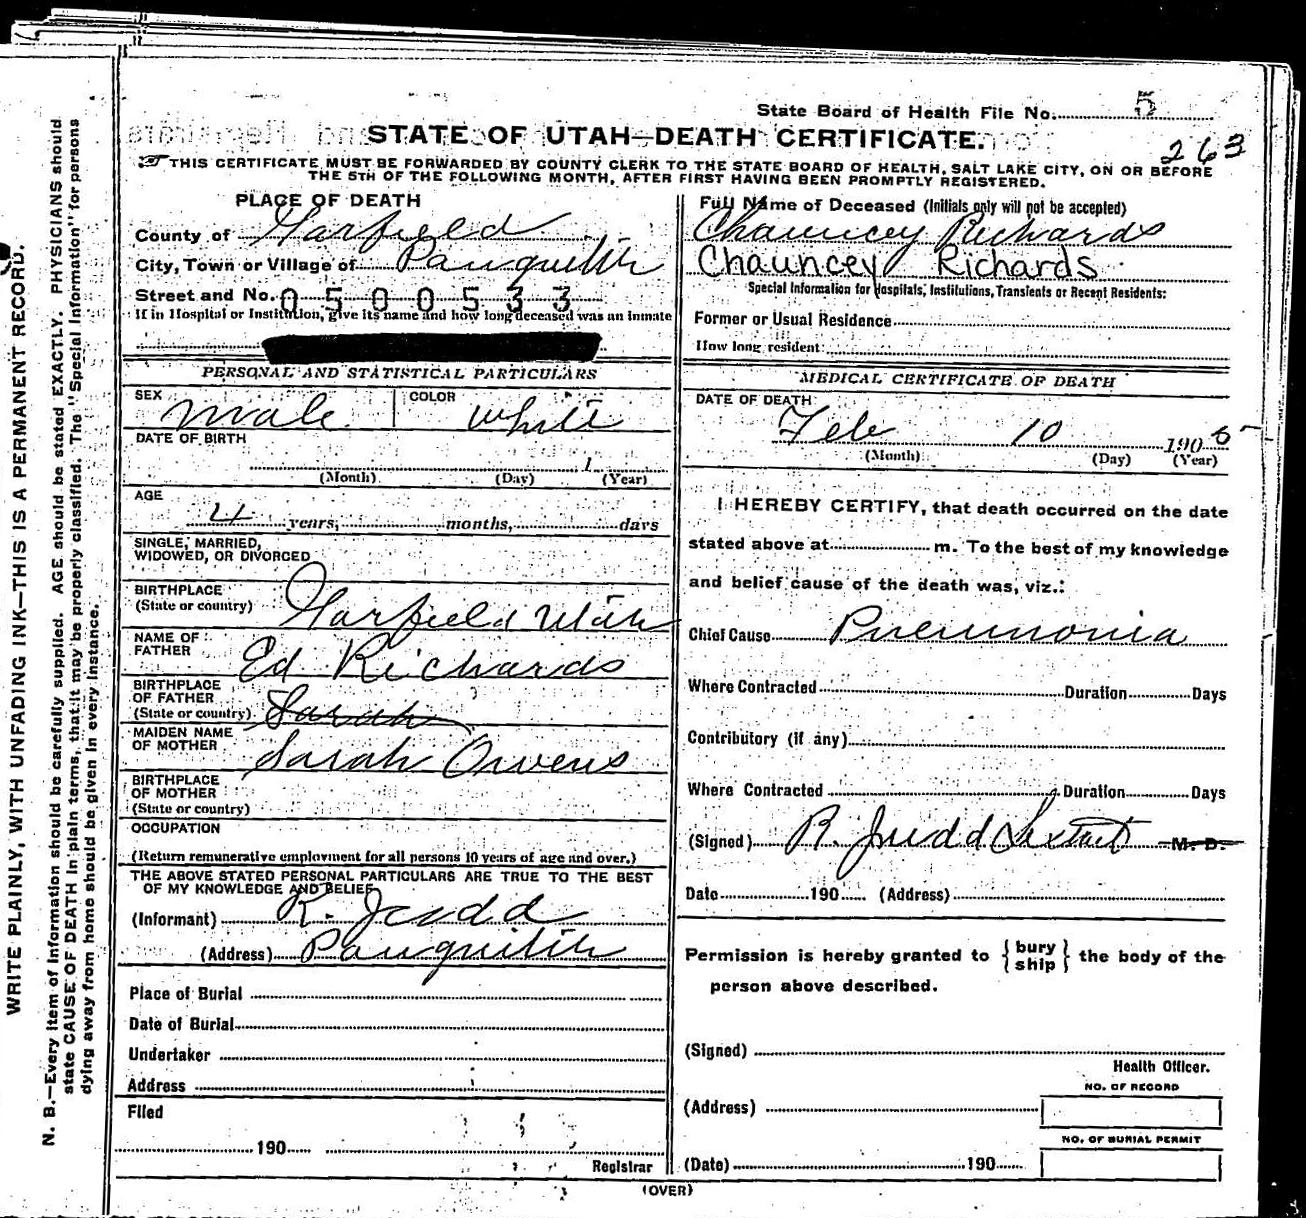 State Board of Health File No. 5
STATE OF UTAH—DEATH CERTIFICATE.
263
THIS CERTIFICATE MUST BE FORWARDED BY COUNTY CLERK TO THE STATE BOARD OF HEALTH, SALT LAKE CITY, ON OR BEFORE
THE 5TH OF THE FOLLOWING MONTH, AFTER FIRST HAVING BEEN PROMPTLY REGISTERED.
PLACE OF DEATH
County of Garfield
City, Town or Village of Panguitch
Street and No. 0500533
If in Hospital or Institution, give its name and how long deceased was an inmate
PERSONAL AND STATISTICAL PARTICULARS
SEX Male COLOR White
DATE OF BIRTH
1
(Month) (Day) (Year)
AGE
4 years, months, days
SINGLE, MARRIED,
WIDOWED, OR DIVORCED
BIRTHPLACE
(State or country) Garfield Utah
NAME OF
FATHER Ed Richards
BIRTHPLACE
OF FATHER
(State or country) Sarah
MAIDEN NAME
OF MOTHER Sarah Owens
BIRTHPLACE
OF MOTHER
(State or country)
OCCUPATION
(Return remunerative employment for all persons 10 years of age and over.)
THE ABOVE STATED PERSONAL PARTICULARS ARE TRUE TO THE BEST
OF MY KNOWLEDGE AND BELIEF
(Informant) R. Judd
(Address) Panguitch
Place of Burial
Date of Burial
Undertaker
Address
Filed
190
Registrar
Full Name of Deceased (Initials only will not be accepted)
Chauncey Richards
Chauncey Richards
Special Information for Hospitals, Institutions, Transients or Recent Residents:
Former or Usual Residence
How long resident
MEDICAL CERTIFICATE OF DEATH
DATE OF DEATH
Feb 10 1905
(Month) (Day) (Year)
I HEREBY CERTIFY, that death occurred on the date
stated above at m. To the best of my knowledge
and belief cause of the death was, viz.:
Chief Cause Pneumonia
Where Contracted Duration Days
Contributory (if any)
Where Contracted Duration Days
(Signed) R. Judd Sextant M. D.
Date 190 (Address)
Permission is hereby granted to { bury
ship } the body of the
person above described.
(Signed)
Health Officer.
NO. OF RECORD
(Address)
NO. OF BURIAL PERMIT
(Date) 190
(OVER)
WRITE PLAINLY, WITH UNFADING INK—THIS IS A PERMANENT RECORD.
N. B.—Every item of information should be carefully supplied. AGE should be stated EXACTLY. PHYSICIANS should
state CAUSE OF DEATH in plain terms, that it may be properly classified. The "Special Information" for persons
dying away from home should be given in every instance.